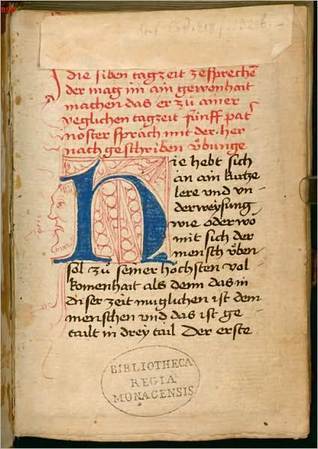 die siben tagzeit zesprechē
der mag im ain gewonhait
machen das er zů ainer
yeglichen tagzeit fünff pat
noster spräch mit der her
nach geschriben übunge
Hie hebt sich
an ain kurtze
lere und vn
derweysung
wie oder wo
mit sich der
mensch üben
sol zů seiner höchsten vol
komenhait als denn das in
diser zeit muglichen ist dem
menschen vnd das ist ge
tailt in drey tail Der erste
BIBLIOTHECA
REGIA
MONACENSIS